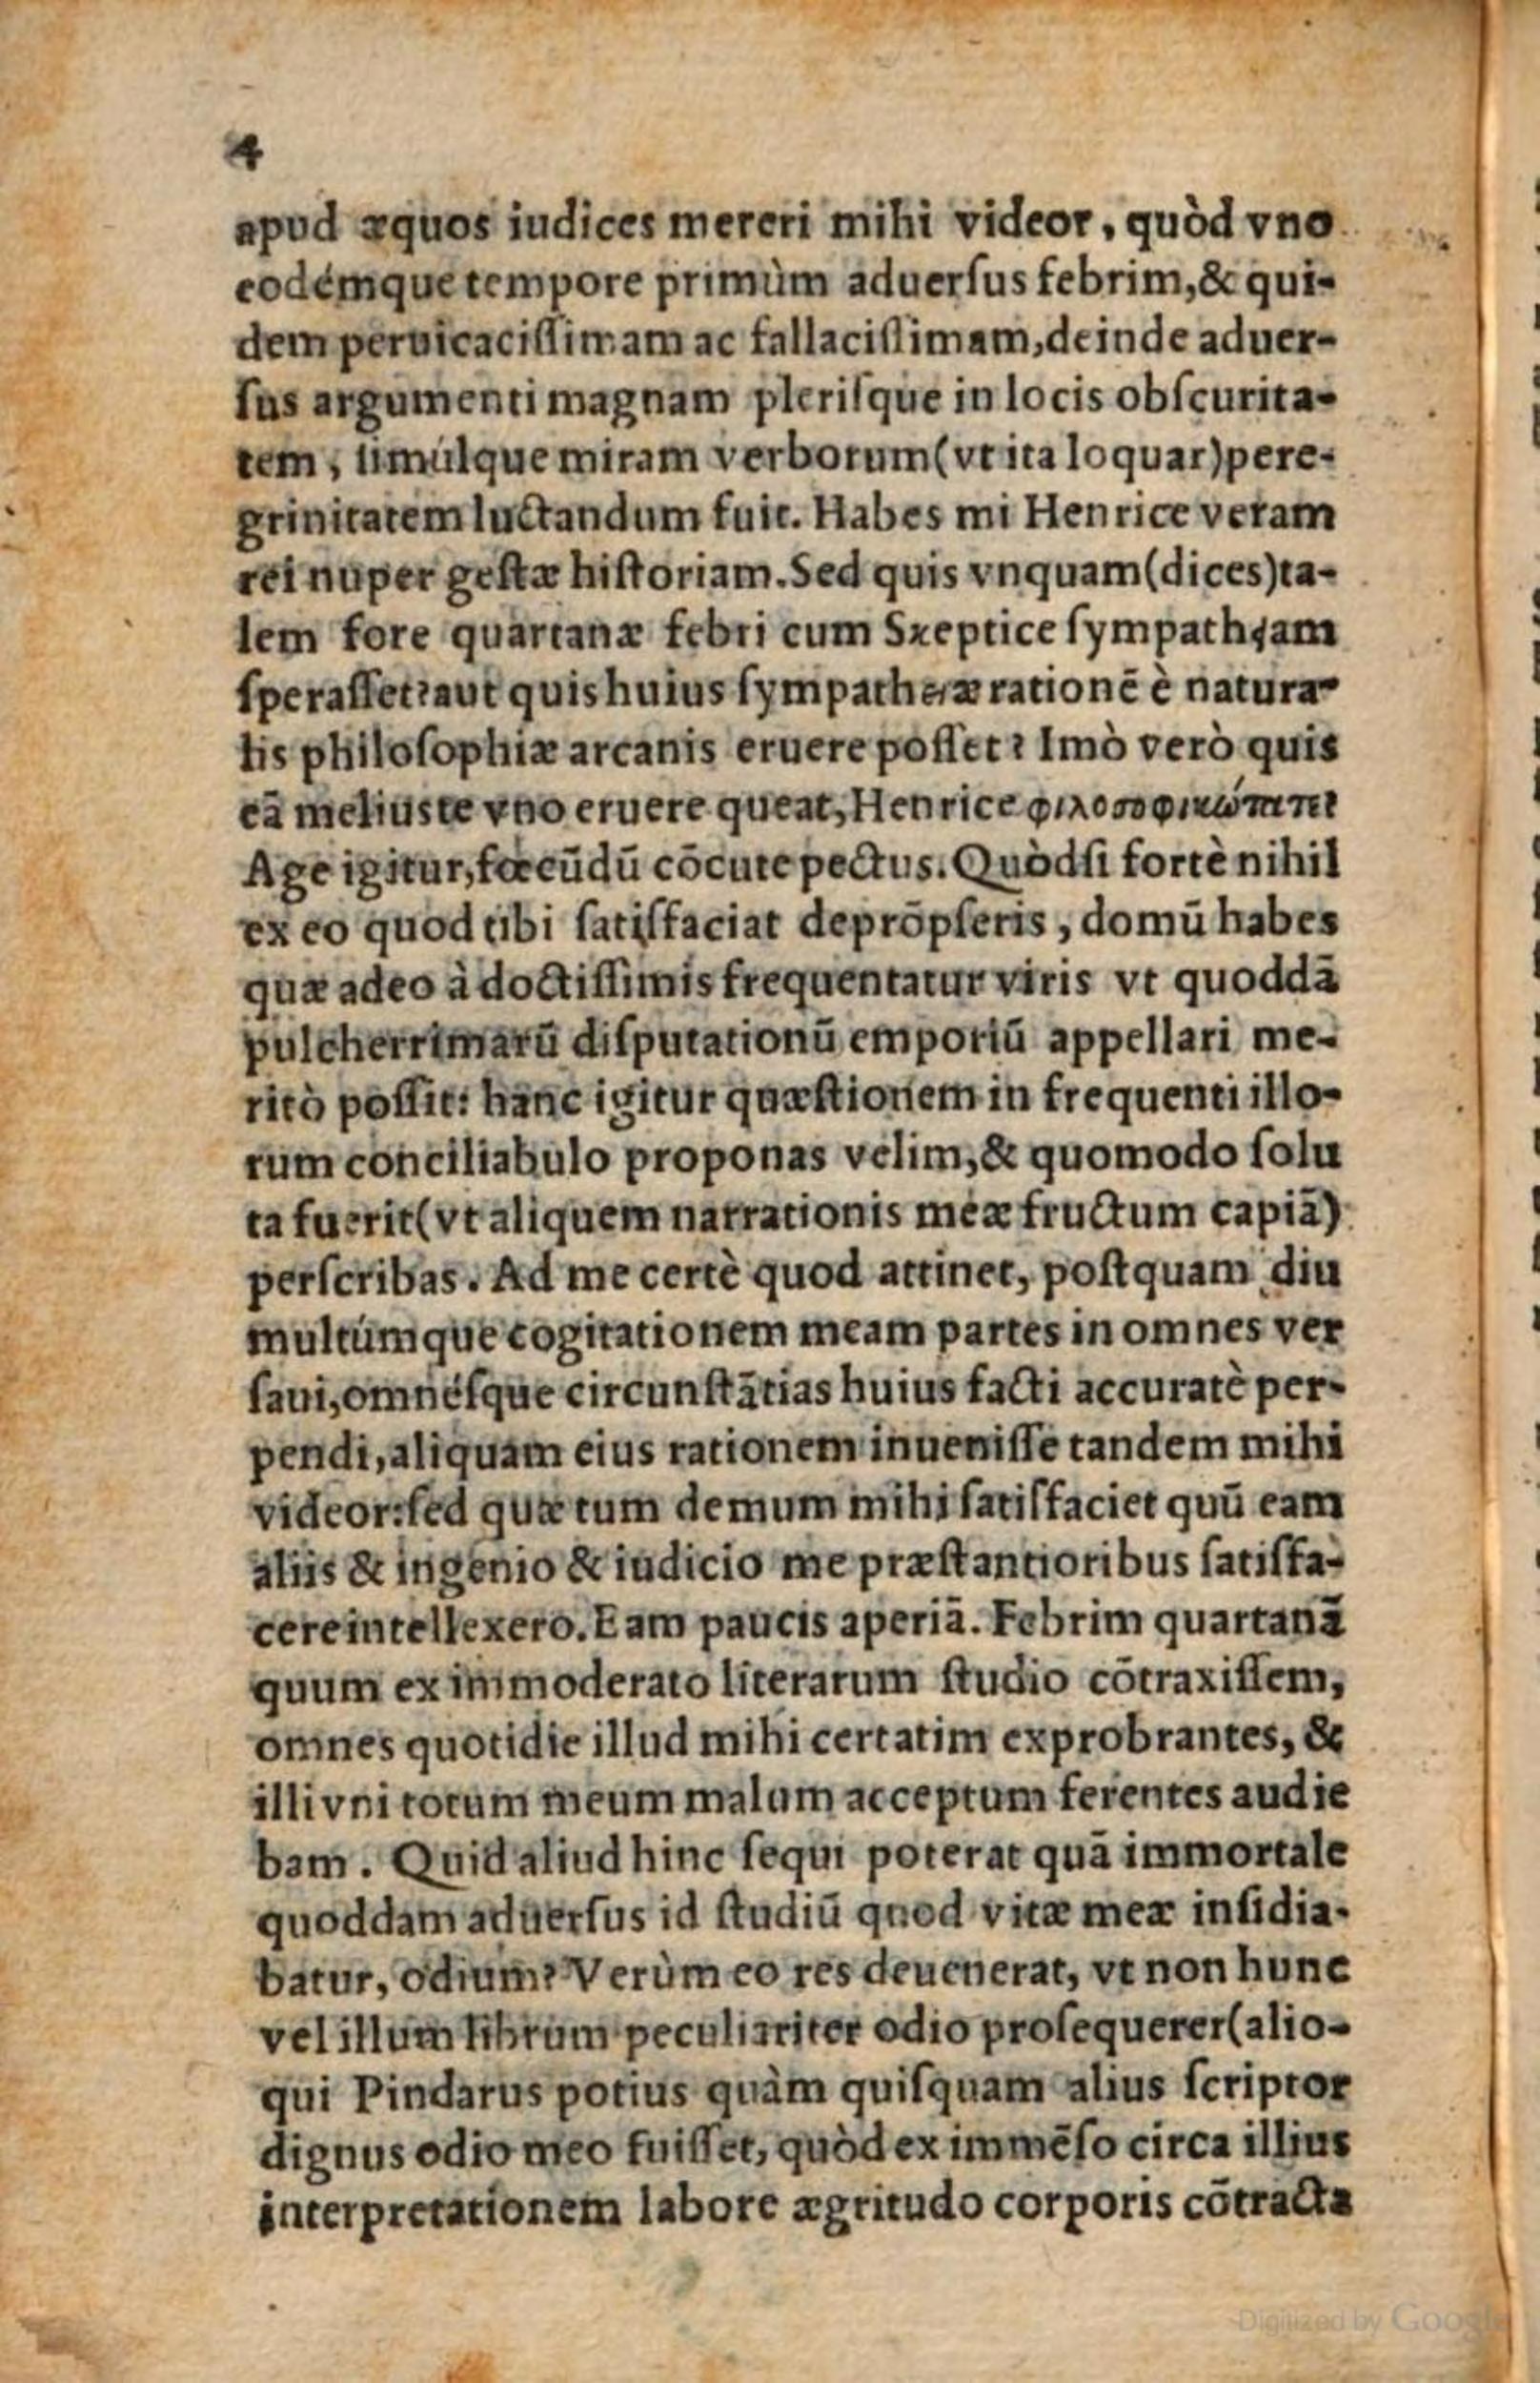 4
apud æquos iudices mereri mihi videor, quòd vno
eodémque tempore primùm aduerſus febrim,& qui-
dem peruicaciſſimam ac fallaciſſimam,deinde aduer-
ſus argumenti magnam pleriſque in locis obſcurita-
tem, ſimúlque miram verborum(vt ita loquar)pere-
grinitatem luctandum fuit. Habes mi Henrice veram
rei nuper geſtæ hiſtoriam.Sed quis vnquam(dices)ta-
lem fore quartanæ febri cum Sxeptice ſympathęiam
ſperaſſet?aut quis huius ſympatheiæ rationē è natura-
lis philoſophiæ arcanis eruere poſſet? Imò verò quis
eā melius te vno eruere queat,Henrice φιλοσοφικώτατε?
Age igitur,fœcūdū cōcute pectus.Quòdſi fortè nihil
ex eo quod tibi ſatiſfaciat deprōpſeris, domū habes
quæ adeo à doctiſſimis frequentatur viris vt quoddā
pulcherrimarū diſputationū emporiū appellari me-
ritò poſſit: hanc igitur quæſtionem in frequenti illo-
rum conciliabulo proponas velim,& quomodo ſolu
ta fuerit(vt aliquem narrationis meæ fructum capiā)
perſcribas. Ad me certè quod attinet, poſtquam diu
multúmque cogitationem meam partes in omnes ver
ſaui,omnéſque circunſtātias huius facti accuratè per-
pendi,aliquam eius rationem inueniſſe tandem mihi
videor:ſed quæ tum demum mihi ſatiſfaciet quū eam
aliis & ingenio & iudicio me præſtantioribus ſatiſfa-
cere intellexero.Eam paucis aperiā. Febrim quartanā
quum ex immoderato literarum ſtudio cōtraxiſſem,
omnes quotidie illud mihi certatim exprobrantes, &
illi vni totum meum malum acceptum ferentes audie
bam. Quid aliud hinc ſequi poterat quā immortale
quoddam aduerſus id ſtudiū quod vitæ meæ inſidia-
batur, odium? Verùm eo res deuenerat, vt non hunc
vel illum librum peculiariter odio proſequerer(alio-
qui Pindarus potius quàm quiſquam alius ſcriptor
dignus odio meo fuiſſet, quòd ex immēſo circa illius
interpretationem labore ægritudo corporis cōtracta
Digitized by Google